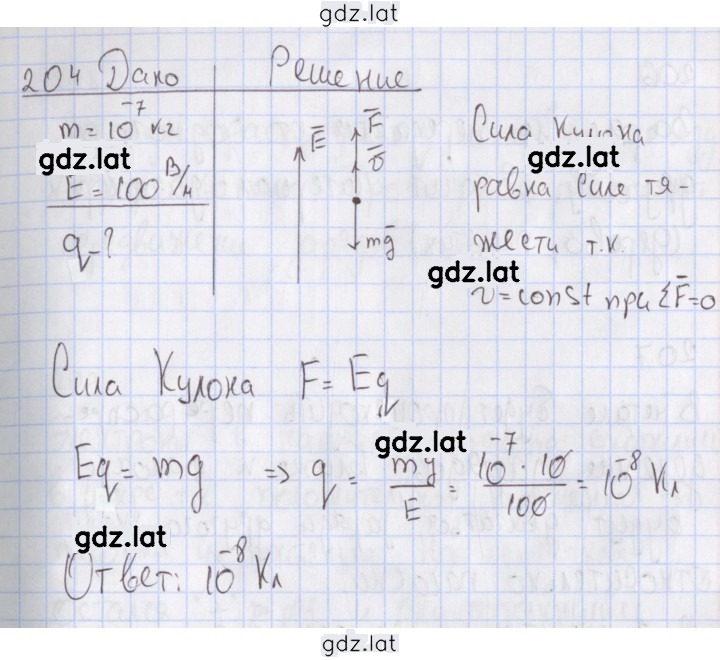 gdz.lat
204 Дано Решение
m = 10⁻⁷ кг
gdz.lat
E = 100 В/м
q - ?
E̅ F̅
v̅
mg̅
Сила Кулона
gdz.lat
равна силе тя-
жести т.к.
gdz.lat
v = const при ΣF̅ = 0
Сила Кулона F = Eq
gdz.lat
Eq = mg => q = mg/E = 10⁻⁷ · 10/100 = 10⁻⁸ Кл
gdz.lat
Ответ: 10⁻⁸ Кл
gdz.lat